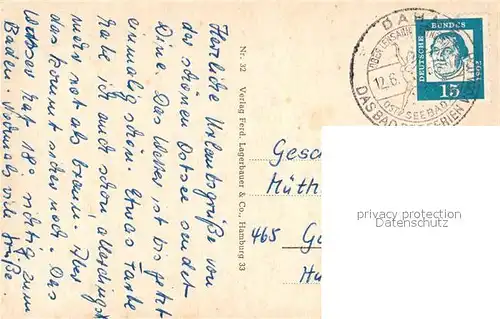 Herzliche Urlaubsgrüße von
der schönen Ostsee sendet
Eine Das Wetter ist bis jetzt
einmalig schön. Etwas Farbe
habe ich auch schon allerdings
mehr rot als braun. Aber
das kommt sicher noch. Das
Wasser hat 18° richtig zum
Baden. Nochmals viele Grüße.
Nr. 32 Verlag Ferd. Lagerbauer & Co., Hamburg 33
DAH
OSTSEEBAD
12.6.
DAS BAD
FERIEN
DEUTSCHE
BUNDES
15
Gesc
Müth
465
G
privacy protection
Datenschutz